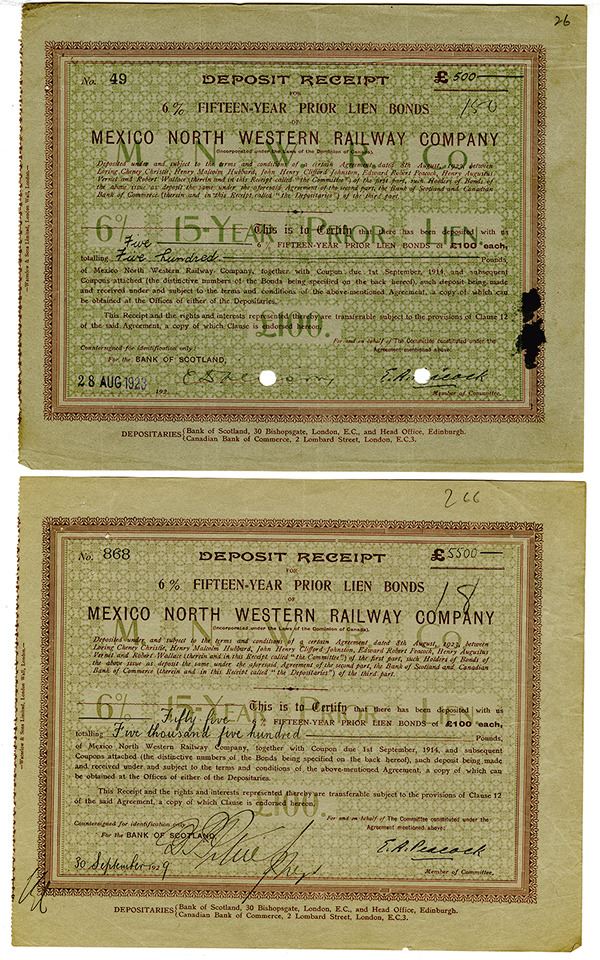 26
No. 49 DEPOSIT RECEIPT £ 500
FOR
6% FIFTEEN-YEAR PRIOR LIEN BONDS
OF
MEXICO NORTH WESTERN RAILWAY COMPANY
(Incorporated under the Laws of the Dominion of Canada).
Deposited under and subject to the terms and conditions of a certain Agreement dated 8th August, 1923, between
Loring Cheney Christie, Henry Malcolm Hubbard, John Henry Clifford Johnston, Edward Robert Peacock, Henry Augustus
Vernet and Robert Wallace (therein and in this Receipt called "the Committee") of the first part, such Holders of Bonds of
the above issue as deposit the same under the aforesaid Agreement of the second part, the Bank of Scotland and Canadian
Bank of Commerce (therein and in this Receipt called "the Depositaries") of the third part.
6% 15-Year Prior Lien
This is to Certify that there has been deposited with us
Five 6% FIFTEEN-YEAR PRIOR LIEN BONDS OF £100 each,
totalling Five hundred Pounds,
of Mexico North Western Railway Company, together with Coupon due 1st September, 1914, and subsequent
Coupons attached (the distinctive numbers of the Bonds being specified on the back hereof), such deposit being made
and received under and subject to the terms and conditions of the above-mentioned Agreement, a copy of which can
be obtained at the Offices of either of the Depositaries.
This Receipt and the rights and interests represented thereby are transferable subject to the provisions of Clause 12
of the said Agreement, a copy of which Clause is endorsed hereon.
£100.
Countersigned for identification only:
For and on behalf of The Committee constituted under the
Agreement mentioned above:
For the BANK OF SCOTLAND,
28 AUG 1923
192
E.R. Peacock
Member of Committee.
DEPOSITARIES {Bank of Scotland, 30 Bishopsgate, London, E.C., and Head Office, Edinburgh.
{Canadian Bank of Commerce, 2 Lombard Street, London, E.C.3.
Waterlow & Sons Limited, London Wall, London.
266
No. 868 DEPOSIT RECEIPT £ 5500
FOR
6% FIFTEEN-YEAR PRIOR LIEN BONDS
OF
18
MEXICO NORTH WESTERN RAILWAY COMPANY
(Incorporated under the Laws of the Dominion of Canada).
Deposited under and subject to the terms and conditions of a certain Agreement dated 8th August, 1923, between
Loring Cheney Christie, Henry Malcolm Hubbard, John Henry Clifford Johnston, Edward Robert Peacock, Henry Augustus
Vernet and Robert Wallace (therein and in this Receipt called "the Committee") of the first part, such Holders of Bonds of
the above issue as deposit the same under the aforesaid Agreement of the second part, the Bank of Scotland and Canadian
Bank of Commerce (therein and in this Receipt called "the Depositaries") of the third part.
6% 15-Year Prior Lien
This is to Certify that there has been deposited with us
Fifty five 6% FIFTEEN-YEAR PRIOR LIEN BONDS OF £100 each,
totalling Five thousand five hundred Pounds,
of Mexico North Western Railway Company, together with Coupon due 1st September, 1914, and subsequent
Coupons attached (the distinctive numbers of the Bonds being specified on the back hereof), such deposit being made
and received under and subject to the terms and conditions of the above-mentioned Agreement, a copy of which can
be obtained at the Offices of either of the Depositaries.
This Receipt and the rights and interests represented thereby are transferable subject to the provisions of Clause 12
of the said Agreement, a copy of which Clause is endorsed hereon.
£100.
Countersigned for identification only:
For and on behalf of The Committee constituted under the
Agreement mentioned above:
For the BANK OF SCOTLAND,
30 September 1929
E.R. Peacock
Member of Committee.
DEPOSITARIES {Bank of Scotland, 30 Bishopsgate, London, E.C., and Head Office, Edinburgh.
{Canadian Bank of Commerce, 2 Lombard Street, London, E.C.3.
Waterlow & Sons Limited, London Wall, London.